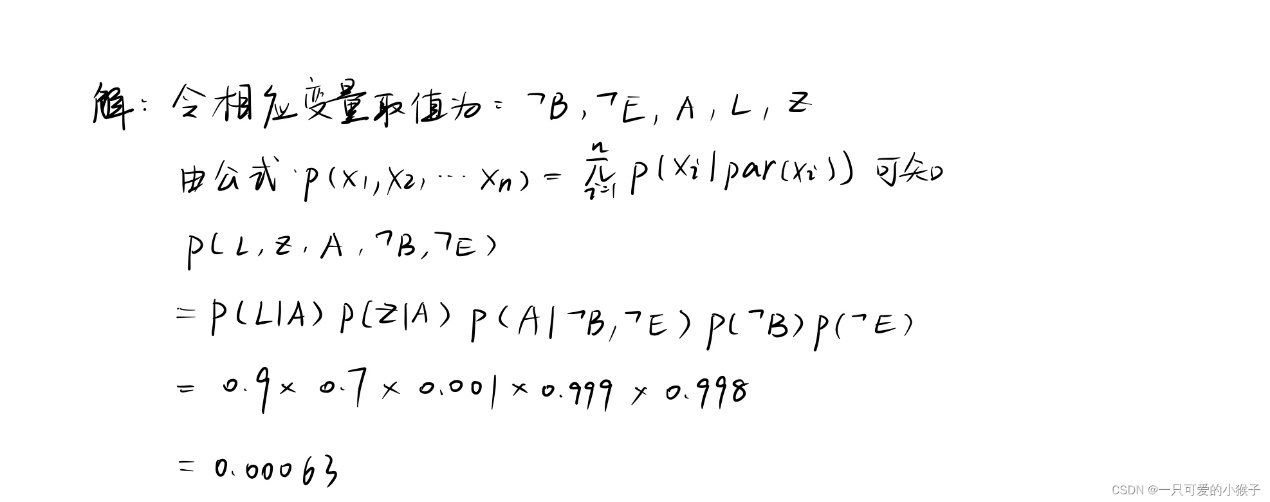 解：令相应变量取值为：¬B,¬E,A,L,Z
由公式 P(X1,X2,…Xn)=∏ⁿᵢ₌₁ P(Xi|par(Xi)) 可知
P(L,Z,A,¬B,¬E)
=P(L|A)P(Z|A)P(A|¬B,¬E)P(¬B)P(¬E)
=0.9×0.7×0.001×0.999×0.998
=0.00063
CSDN @一只可爱的小猴子